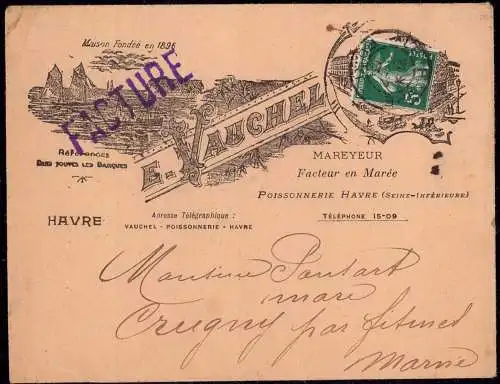 Maison Fondée en 1896
FACTURE
E. VAUCHEL
Références
DANS TOUTES LES BANQUES
MAREYEUR
Facteur en Marée
POISSONNERIE HAVRE (SEINE-INFÉRIEURE)
HAVRE
Adresse Télégraphique :
VAUCHEL - POISSONNERIE - HAVRE
TÉLÉPHONE 15-09
Monsieur
Crugny par
Marne